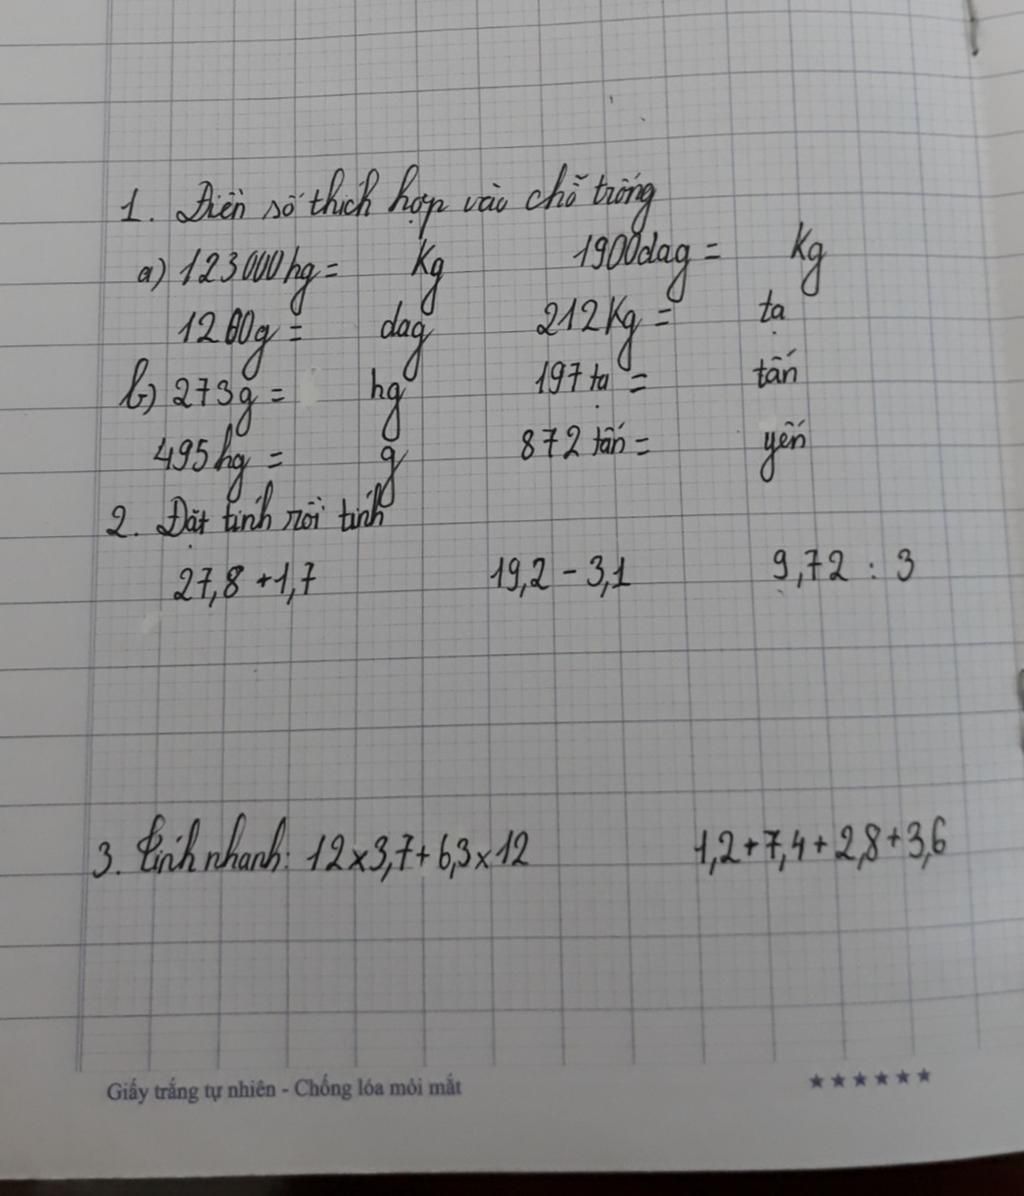 1. Điền số thích hợp vào chỗ trống
a) 123000hg = Kg 1900dag = Kg
1260g = dag 212Kg = tạ
b) 273g = hg 197 tạ = tấn
495hg = g 872 tấn = yến
2. Đặt tính rồi tính
27,8 + 1,7 19,2 - 3,1 9,72 : 3
3. Tính nhanh: 12 x 3,7 + 6,3 x 12 1,2 + 7,4 + 2,8 + 3,6
Giấy trắng tự nhiên - Chống lóa mỏi mắt ★★★★★★